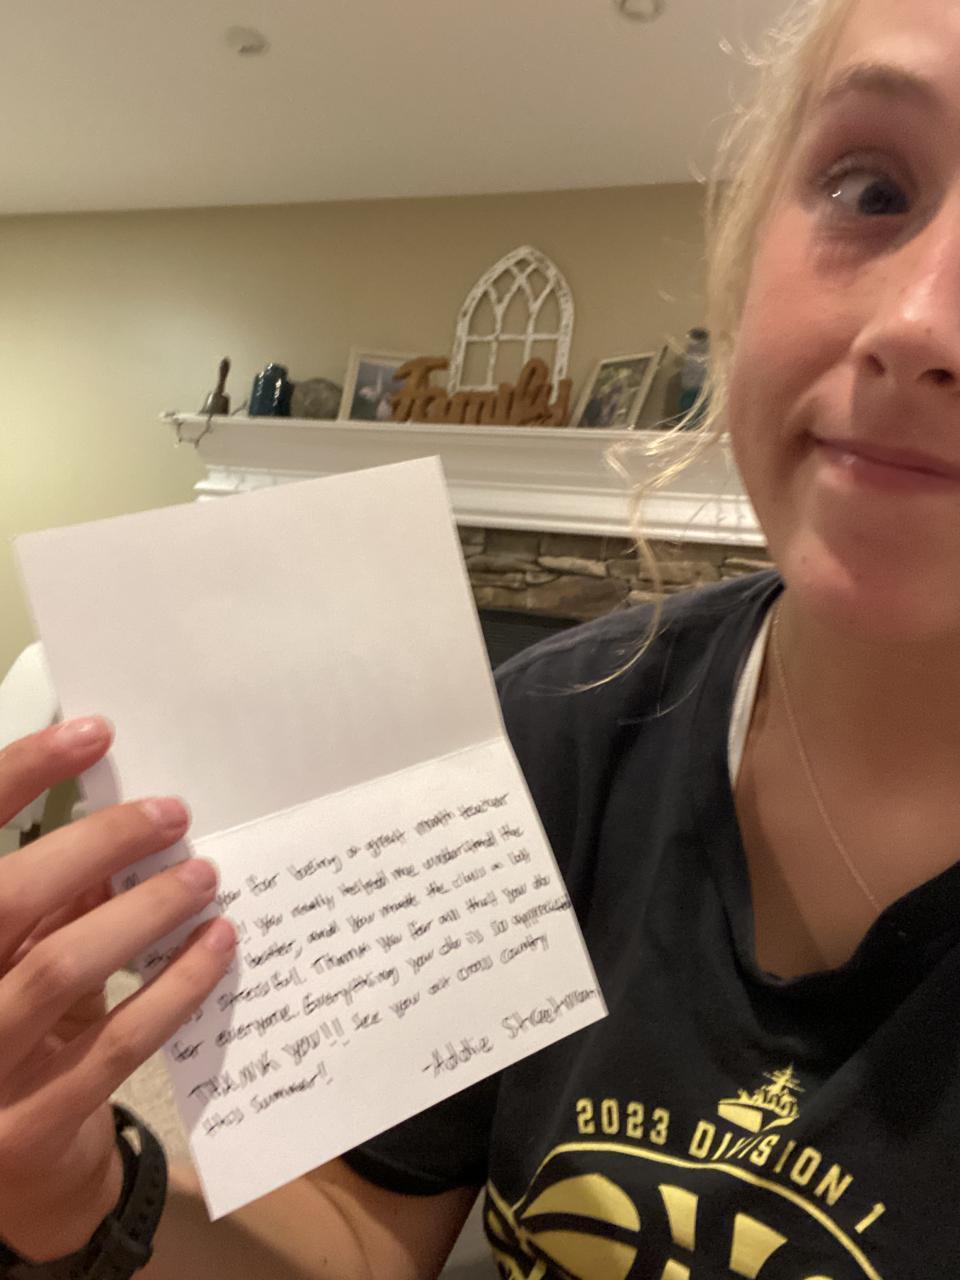 Family
you for being a great math teacher
!! You really helped me understand the
better, and you made the class a lot
stressful. Thank you for all that you do
for everyone. Everything you do is so appreciated
THANK YOU!!! See you at cross country
this summer!
-Addie
2023 DIVISION 1